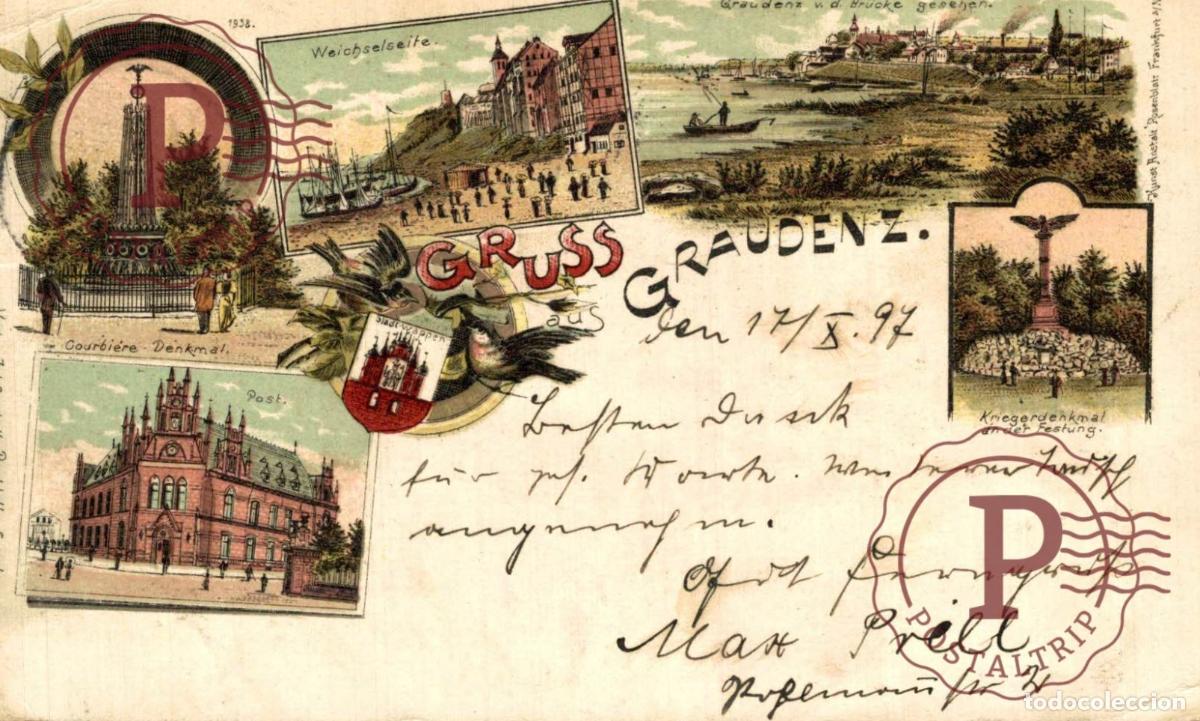 1938.
Weichselseite.
Graudenz v. d. Brücke gesehen.
Kunst Anstalt Rosenblatt Frankfurt a/M
Courbière Denkmal.
GRUSS
aus
GRAUDENZ.
Stadt Wappen
Post.
Kriegerdenkmal
an der Festung.
den 17/X. 97
Besten Dank
für gef. Karte. Weiterer Tausch
angenehm.
Max Prill
P
P
POSTALTRIP
todocoleccion